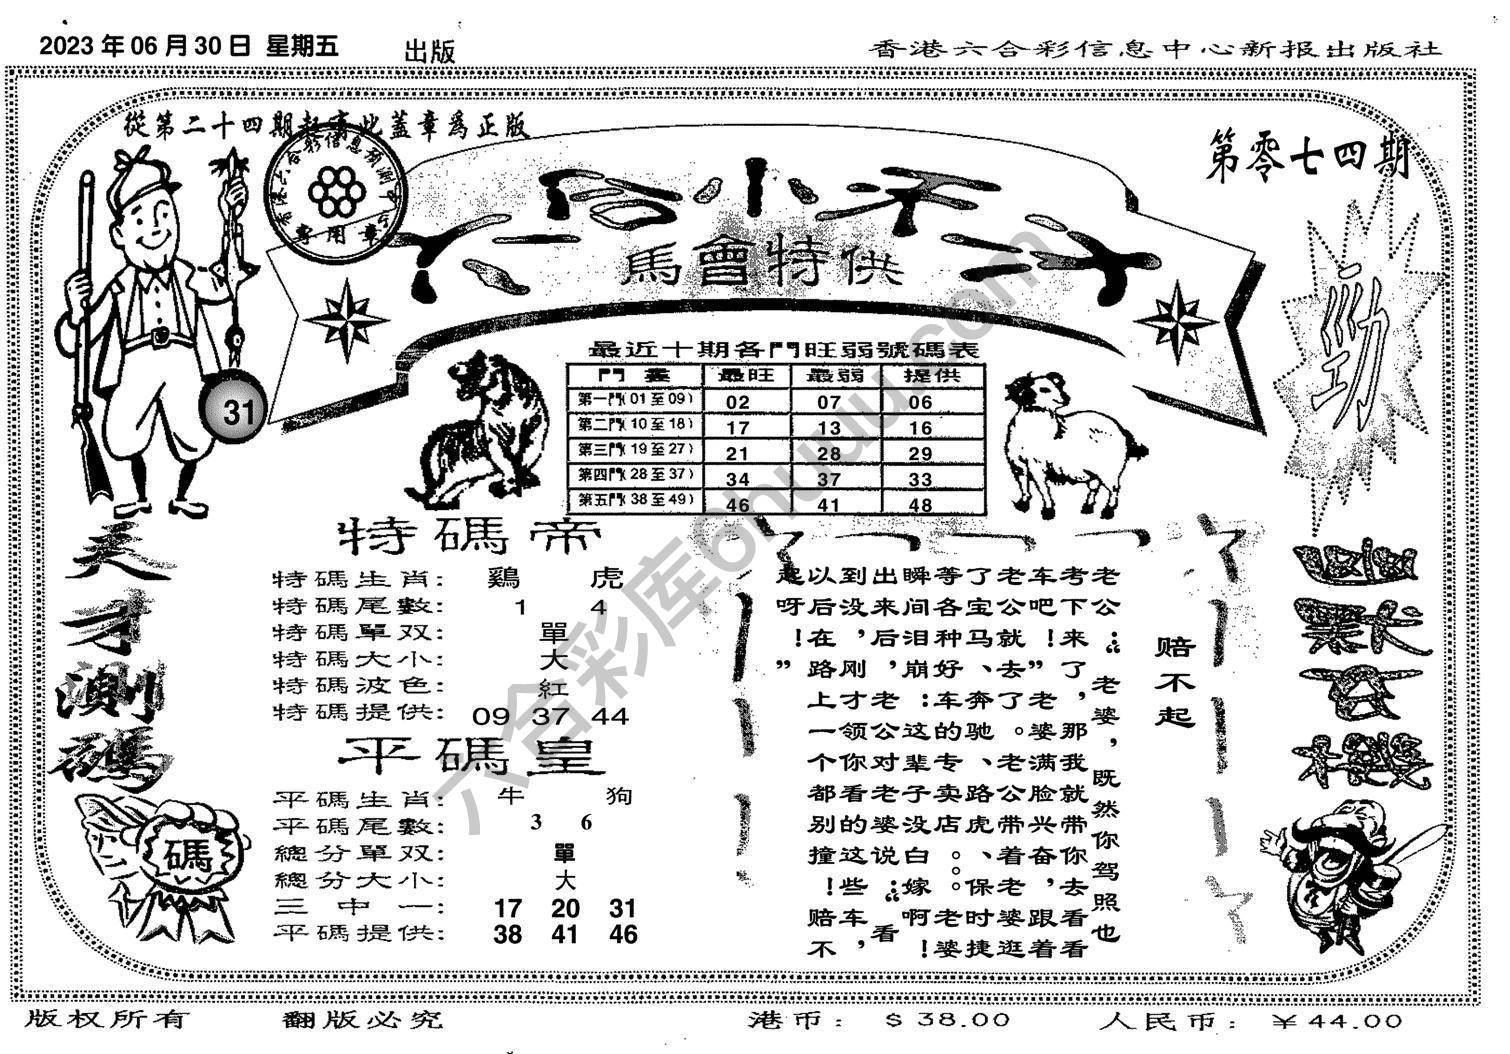 2023年06月30日 星期五
出版
香港六合彩信息中心新报出版社
從第二十四期起有此蓋章爲正版
第零七四期
專用章
六合小天才
馬會特供
勁
31
最近十期各門旺弱號碼表
門裏 最旺 最弱 提供
第一門(01至09) 02 07 06
第二門(10至18) 17 13 16
第三門(19至27) 21 28 29
第四門(28至37) 34 37 33
第五門(38至49) 46 41 48
天才測碼
特碼帝
特碼生肖: 鷄 虎
特碼尾數: 1 4
特碼單双: 單
特碼大小: 大
特碼波色: 紅
特碼提供: 09 37 44
平碼皇
平碼生肖: 牛 狗
平碼尾數: 3 6
總分單双: 單
總分大小: 大
三中一: 17 20 31
平碼提供: 38 41 46
碼
赔不起
老公：老婆，既然你驾照也
考下来了，那我就带你去看看
车吧！”老婆满脸兴奋，跟着
老公就去了。老公带着老婆逛
了宝马、奔驰、路虎、保时捷
等各种好车的专卖店。。。
瞬间泪崩：这辈子没白嫁啊！老婆
出来后，老公对老婆说：看
到没，刚才领你看的这些车，
以后在路上一个都别撞！赔不
起呀！”
六合彩库6huuu.com
版权所有
翻版必究
港币： $38.00
人民币： ￥44.00